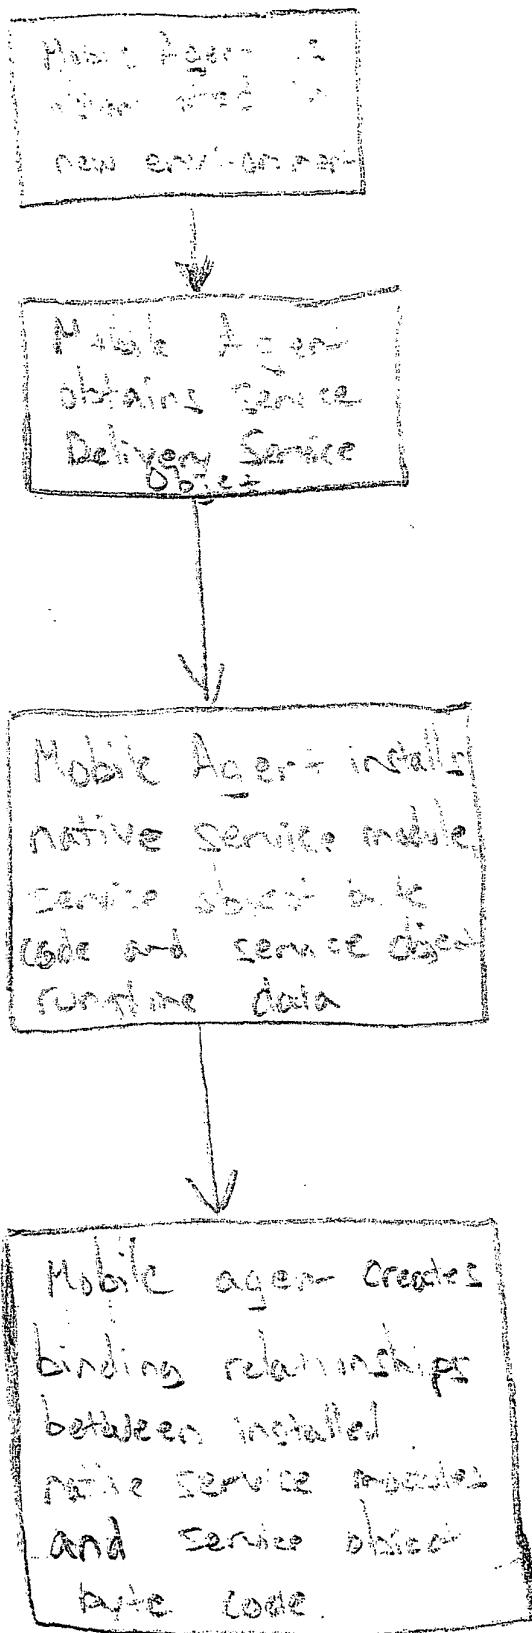 Mobile Agent is
in
new environment
Mobile Agent
obtains service
Delivery Service
Object
Mobile Agent installs
native service module
service object byte
code and service object
runtime data
Mobile agent creates
binding relationships
between installed
native service modules
and service object
byte code.